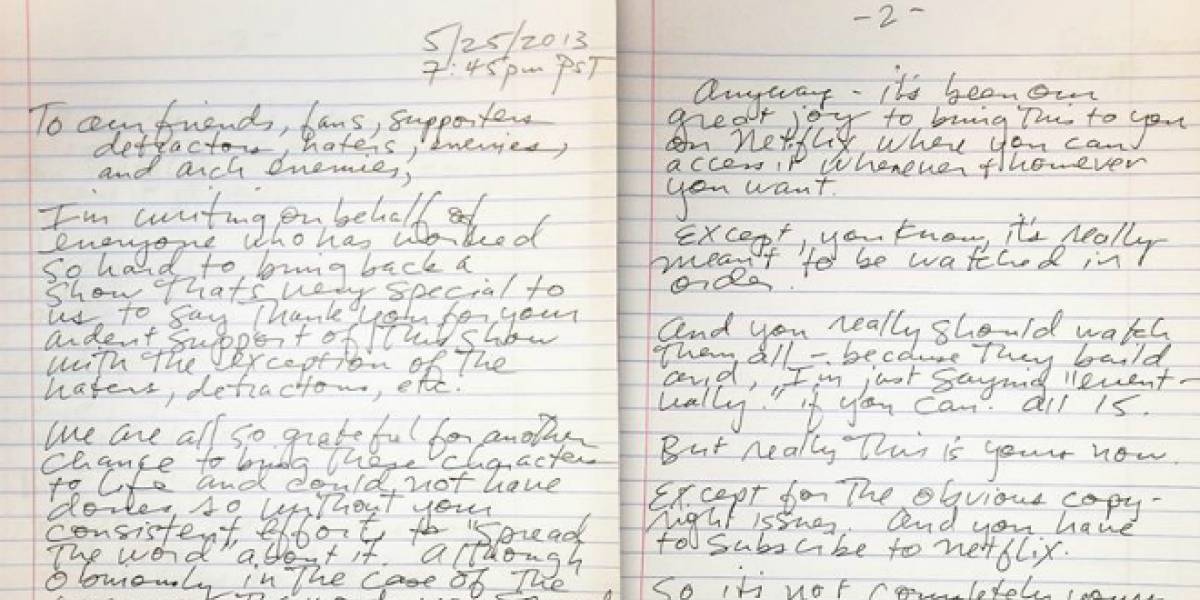 5/25/2013
7:45pm PST
To our friends, fans, supporters
detractors, haters, enemies,
and arch enemies,
I'm writing on behalf of
everyone who has worked
so hard to bring back a
show that's very special to
us to say thank you for your
ardent support of this show
with the exception of the
haters, detractors, etc.
We are all so grateful for another
chance to bring these characters
to life and could not have
done so without your
consistent effort to "spread
the word" about it. Although
obviously in the case of the
-2-
Anyway - it's been our
great joy to bring this to you
on Netflix where you can
access it whenever + however
you want.
Except, you know, it's really
meant to be watched in
order.
And you really should watch
them all - because they build
and, I'm just saying "event-
ually." if you can. all 15.
But really this is yours now.
Except for the obvious copy-
right issues. And you have
to subscribe to netflix.
So it's not completely yours